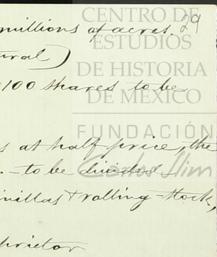 millions of acres. 29
tural)
100 shares to be
s at half price, the
. - to be divided
nillas & rolling stock,
prietor
CENTRO DE
ESTUDIOS
DE HISTORIA
DE MÉXICO
FUNDACIÓN
Carlos Slim